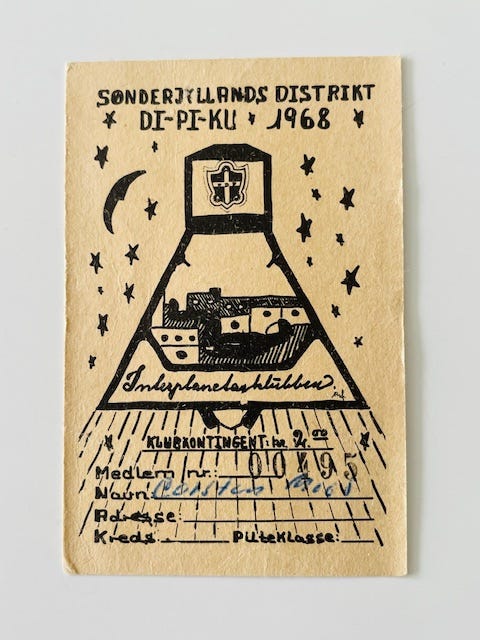 SØNDERJYLLANDS DISTRIKT
DI-PI-KU 1968
Interplanetarklubben.
KLUBKONTINGENT: kr. 2.00
Medlem nr.: 00495
Navn: Carsten
Adresse:
Kreds: PilteKlasse: